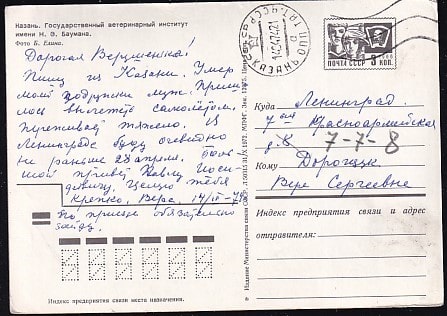 Казань. Государственный ветеринарный институт
имени Н. Э. Баумана.
Фото Б. Елина.
Дорогая Верушенька!
Пишу из Казани. Умер
моей подружки муж. Пришлось
вылететь самолётом,
переживает тяжело. В
Ленинграде буду очевидно
не раньше 23 апреля.
привет
Целую тебя
крепко, Вера. 14/IV-74
По приезде обязательно
зайду.
КАЗАНЬ
ПОЧТА СССР
Куда
Ленинград
7 ая Красноармейская
7-7-8
Кому
Дорогецк
Вере Сергеевне
Индекс предприятия связи и адрес
отправителя:
Индекс предприятия связи места назначения.